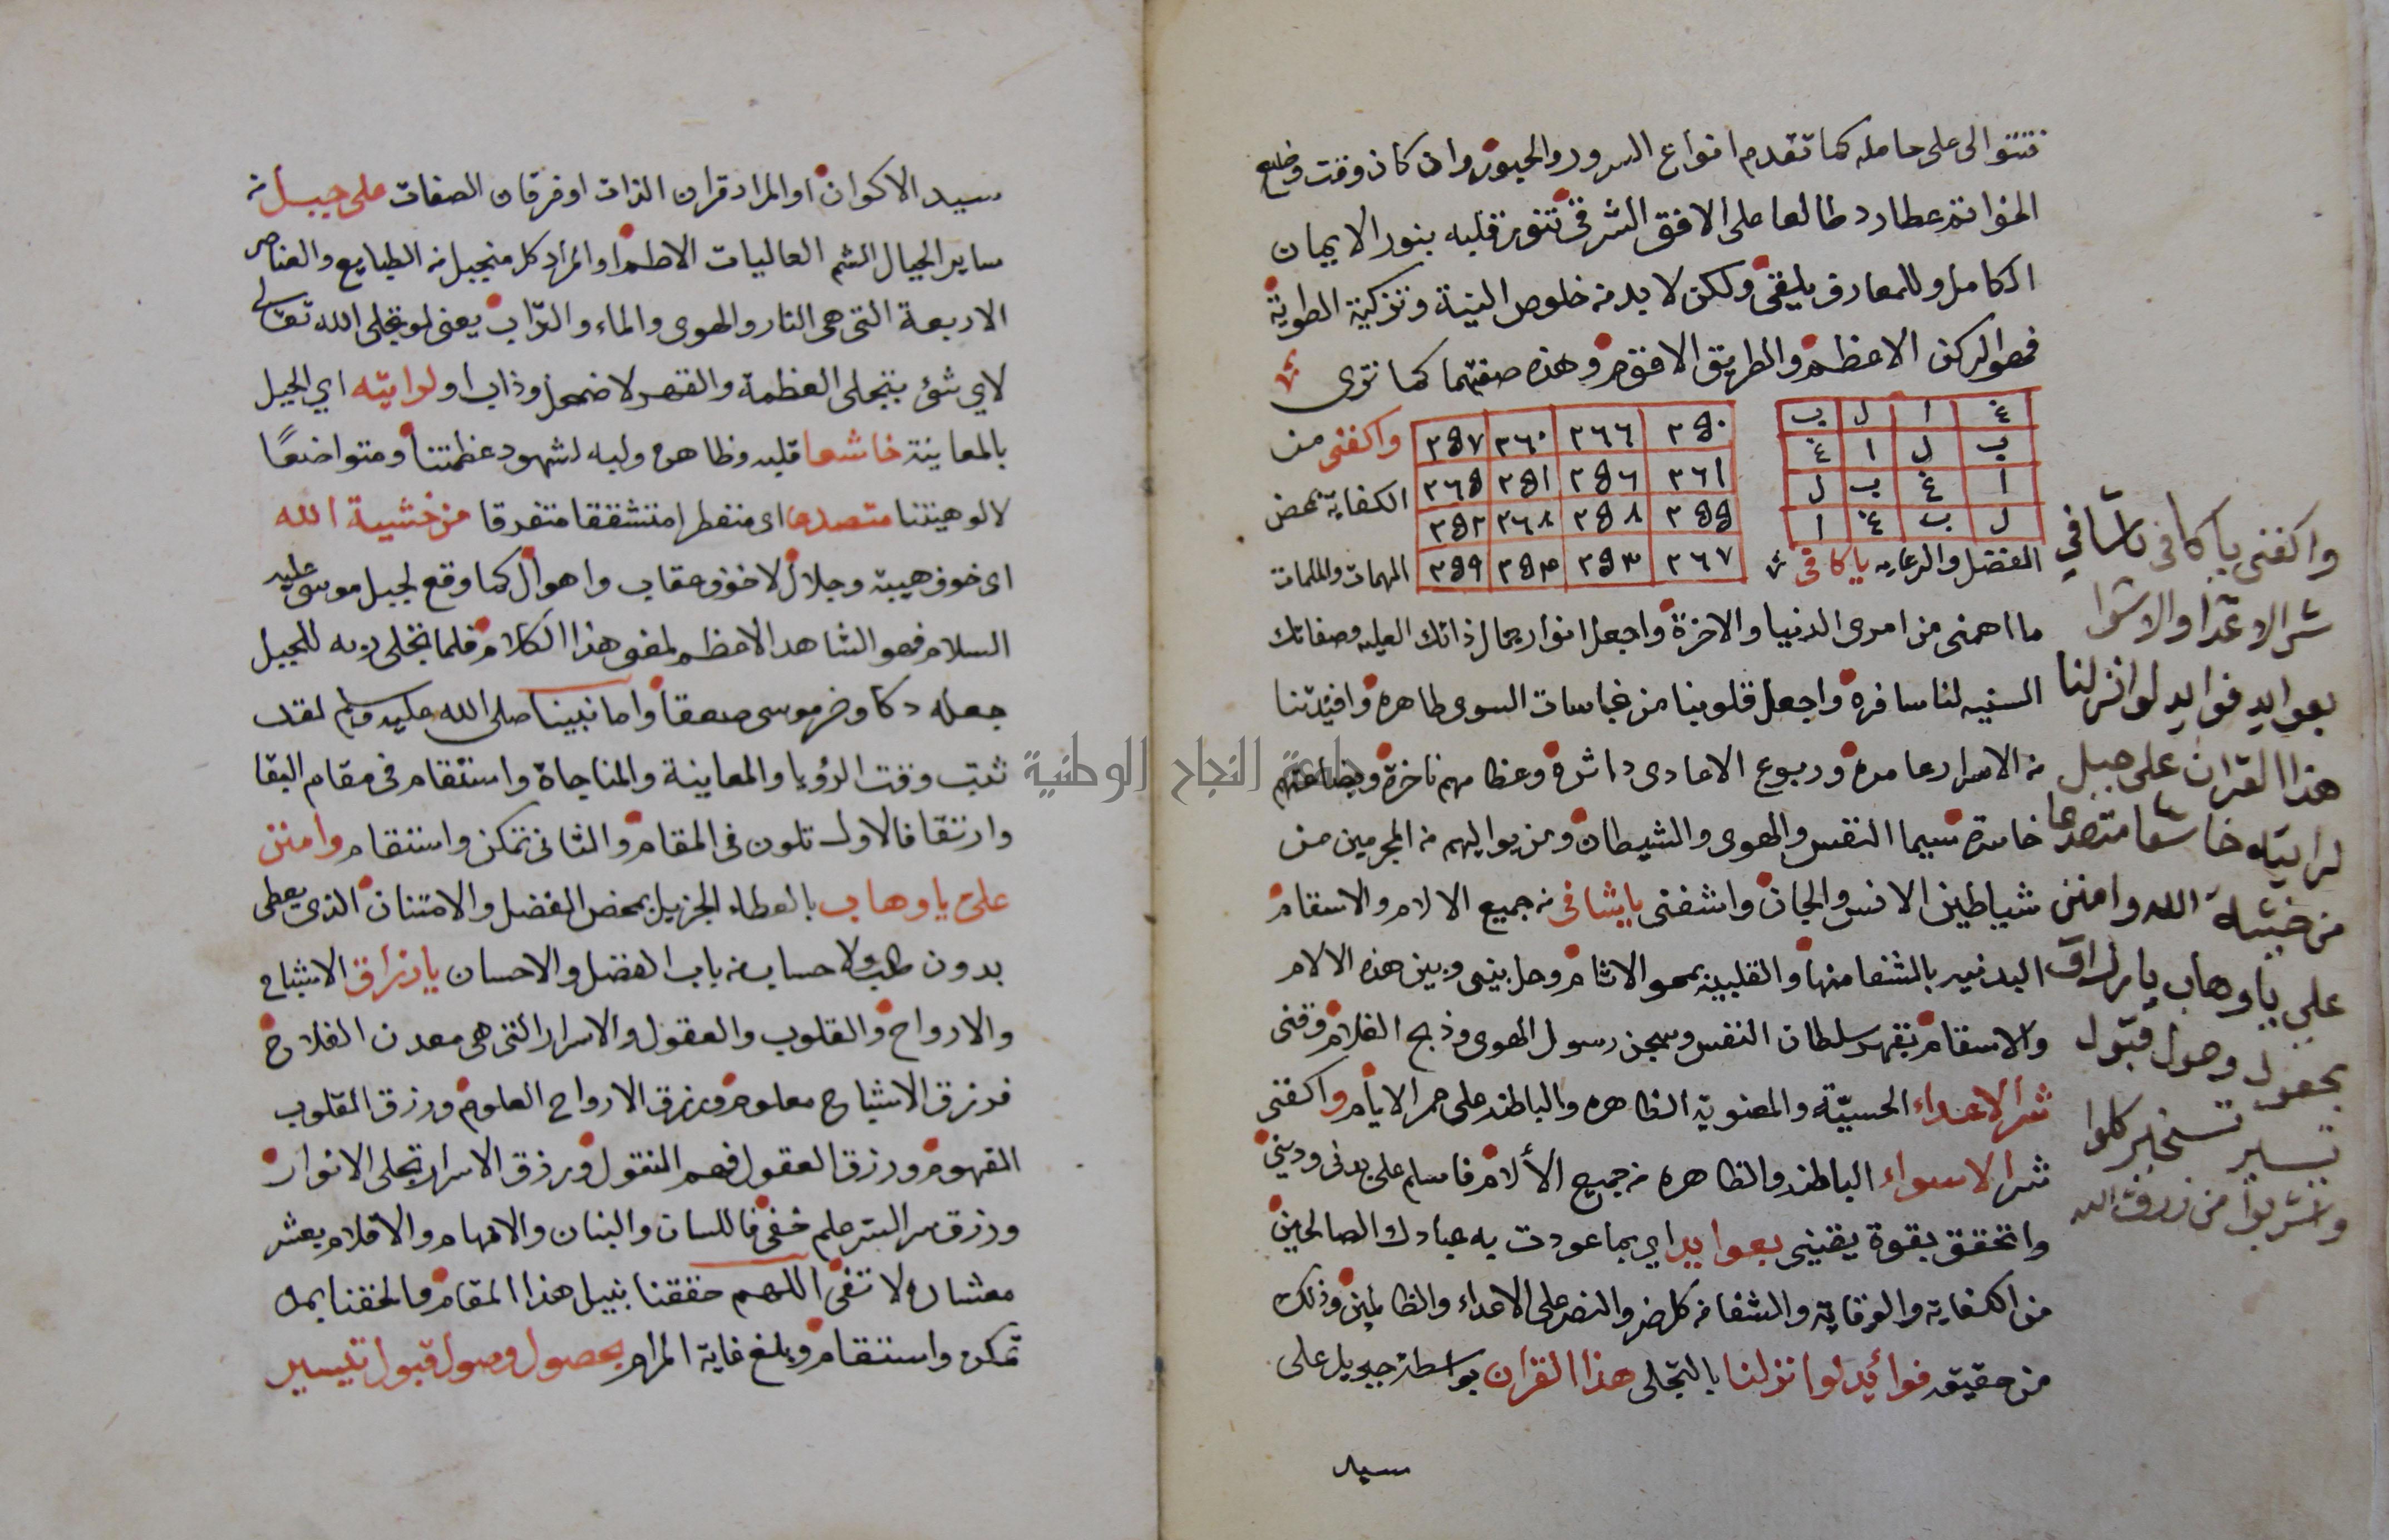 فتتوالى على حامله كما تقدم انواع السرور والحبور وان كان وقت وضع
الخواتم عطارد طالعا على الافق الشرقى تنور قلبه بنور الايمان
الكامل وللمعارف يليقى ولكن لا بد من خلوص النية وتزكية الطوية
فهو الركن الاعظم والطريق الاقوم وهذه صفتهما كما ترى
غ ا ل ب
ب ل ا غ
ا غ ب ل
ل ب غ ا
٣٥٠ ٣٦٦ ٣٦٠ ٣٥٧
٣٦١ ٣٥٦ ٣٥١ ٣٦٥
٣٥٥ ٣٥٨ ٣٦٨ ٣٥٢
٣٦٧ ٣٥٣ ٣٥٣ ٣٥٩
واكفنى من
الكفاية بمحض
الفضل والرعايه يا كافى
المهمات والملمات
ما اهمنى من امرى الدنيا والاخرة واجعل انوار جمال ذاتك العليه وصفاتك
السنيه لنا سافرة واجعل قلوبنا من نجاسات السوى طاهرة وافيدتنا
من الاسرار عامرة وربوع الاعادى داثرة وعظامهم ناخرة وبضاعتهم
خاسرة سيما النفس والهوى والشيطان ومن يواليهم من المجرمين من
شياطين الانس والجان واشفنى يا شافى من جميع الالام والاسقام
البدنيه بالشفا منها والقلبية بمحو الاثام وحل بينى وبين هذه الالام
والاسقام بقهر سلطان النفس وسجن رسول الهوى وذبح الغلام وقنى
شر الاعداء الحسيّة والمعنوية الظاهره والباطنه على ممر الايام واكفنى
شر الاسواء الباطنه والظاهره من جميع الألام فاسلم على بدنى ودينى
واتحقق بقوة يقينى بعوايد اي بما عودت به عبادك الصالحين
من الكفاية والوقاية والشفا من كل ضر والنصر على الاعداء والظالمين وذلك
من حقيقه فوائد لو انزلنا بالتجلى هذا القران بواسطة جبريل على
سيد
واكفنى يا كافى يا شافي
شر الاعدا والاسوا
بعوايد فوايد لو انزلنا
هذا القران على جبل
لرايته خاشعا متصدعا
من خشية الله وامنن
علي يا وهاب يا رزاق
بحصول وصول قبول
تيسير تسخير كلوا
واشربوا من رزق الله
سيد الاكوان او المراد قران الذات او فرقان الصفات على جبل من
ساير الجبال الشم العاليات الاطم او المراد كل منجبل من الطبايع والعناصر
الاربعة التى هى النار والهوى والماء والترّاب يعنى لو تجلى الله تعالى
لاي شئ بتجلى العظمة والقهر لاضمحل وذاب او لرايته اي الجبل
بالمعاينة خاشعا قلبه وظاهره ولبه لشهود عظمتنا ومتواضعًا
لالوهيتنا متصدعا اى منفطرا متشققا متفرقا من خشية الله
اى خوف هيبة وجلال لا خوف عقاب واهوال كما وقع لجبل موسى عليه
السلام فهو الشاهد الاعظم لمغى هذا الكلام فلما تجلى ربه للجبل
جعله دكا وخر موسى صعقا واما نبينا صلى الله عليه وسلم لقد
ثبت وقت الرؤيا والمعاينة والمناجاة واستقام فى مقام البقا
وارتقا فالاول تلون فى المقام والثانى تمكن واستقام وامنن
علىّ يا وهاب بالعطاء الجزيل بمحض الفضل والامتنان الذى يعطى
بدون طلب ولا حساب من باب الفضل والاحسان يا رزاق الاشباح
والارواح والقلوب والعقول والاسرار التى هى معدن الفلاح
فرزق الاشباح معلوم ورزق الارواح العلوم ورزق القلوب
الفهوم ورزق العقول فهم المنقول ورزق الاسرار تجلى الانوار
ورزق سر السر علم خفى فاللسان والبنان والافهام والاقلام بعشر
معشاره لا تفى اللهم حققنا بنيل هذا المقام والحقنا بمن
تمكن واستقام وبلغ غاية المرام بحصول وصول قبول تيسير
جامعة النجاح الوطنية